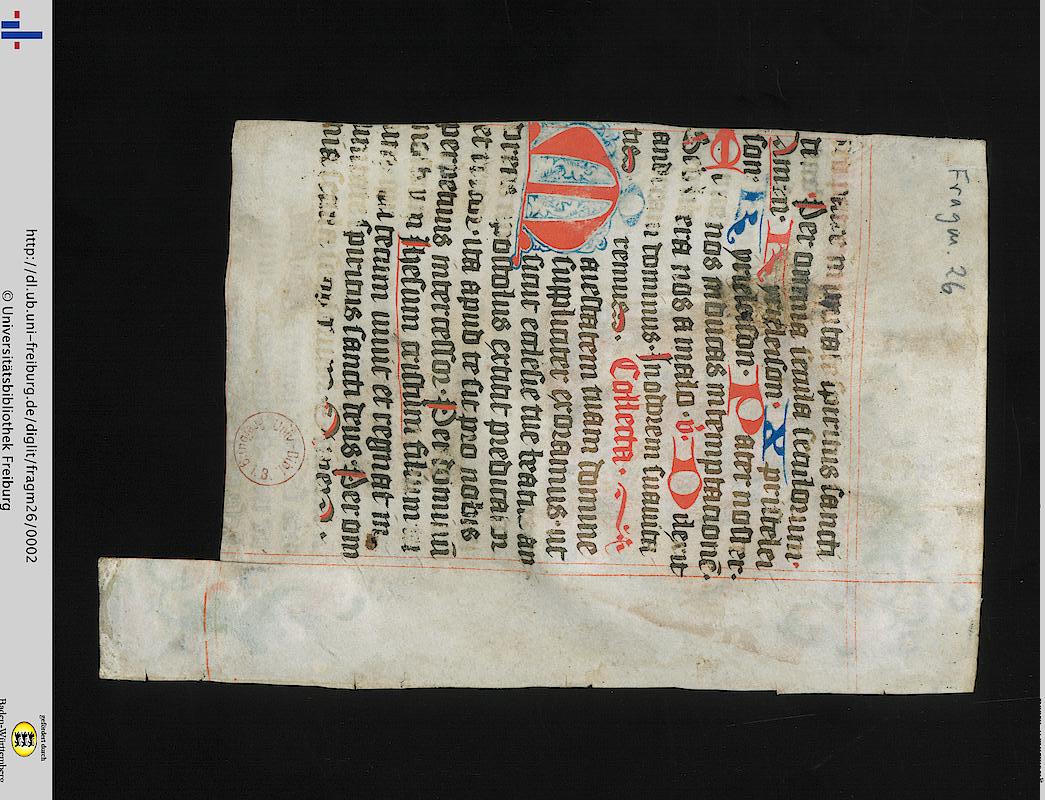 unitate spiritus sancti
deus. Per omnia secula seculorum.
Amen. Kyrieleison. Xpriſtelei
son. Kyrieleison. Pater noster.
Et ne nos inducas in temptationē.
Sed libera nos a malo. v̄. Dilexit
andream dominus. In odorem suauita
tis. remus. Collecta.
Maiestatem tuam domine
suppliciter exoramus. ut
sicut ecclesie tue beatus an
dreas apostolus extitit predicator
et rector. ita apud te sit pro nobis
perpetuus intercessor. Per dominū
nostrum Jhesum cristum filium
tecum uiuit et regnat in
spiritus sancti deus. Per om
Fragm. 26
http://dl.ub.uni-freiburg.de/diglit/fragm26/0002
© Universitätsbibliothek Freiburg
gefördert durch
Baden-Württemberg